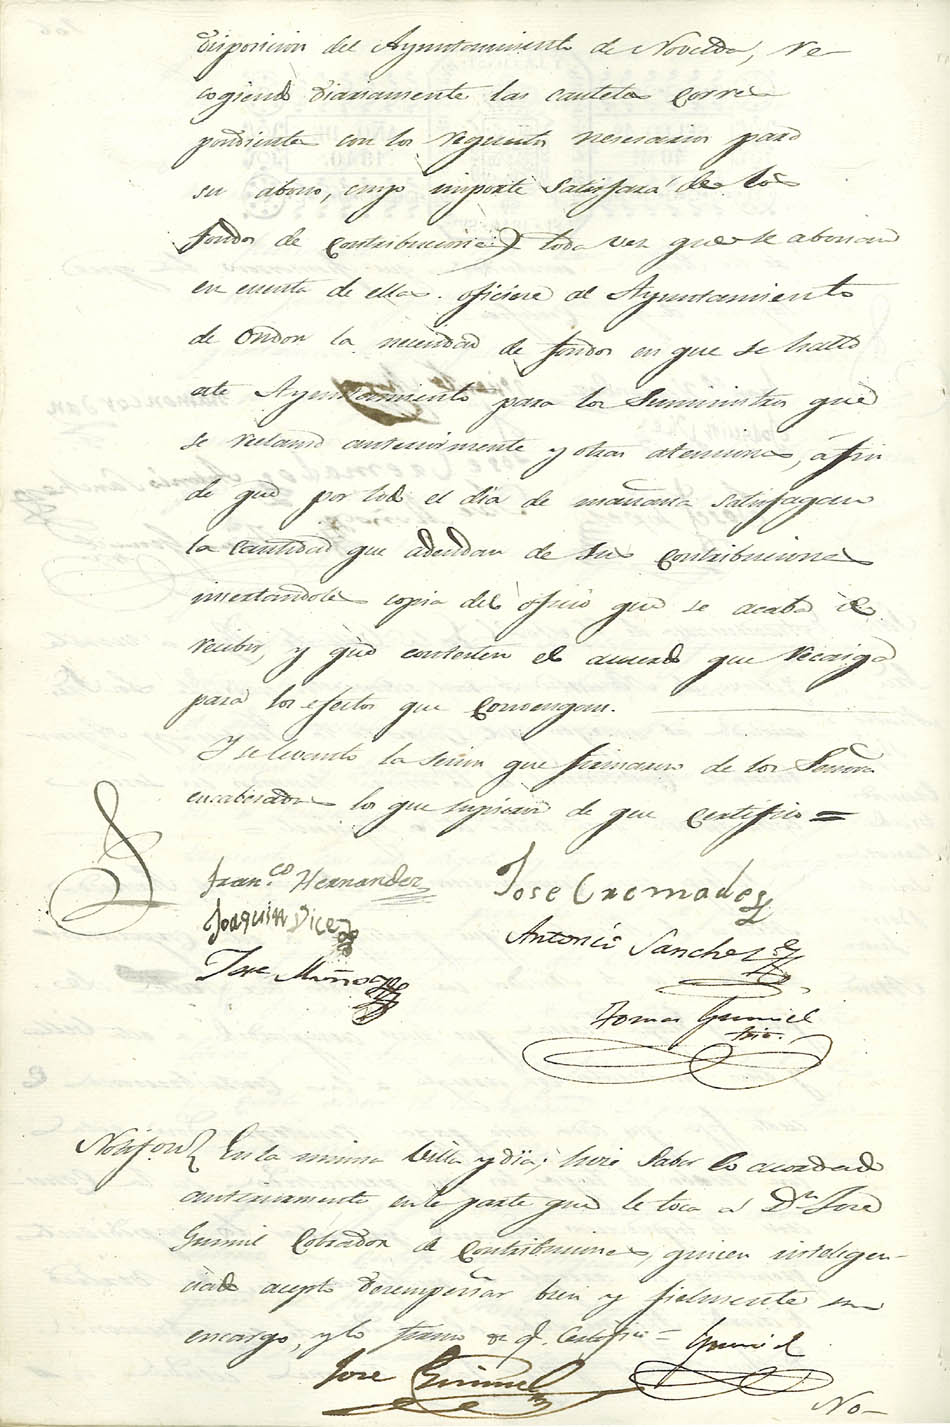 disposicion del Ayuntamiento de Novelda, re-
cogiendo diariamente las cautelas corres
pondientes con los requisitos necesarios para
su abono, cuyo importe satisfará de los
fondos de contribuciones toda vez que se abonan
en cuenta de ellas. oficiese al Ayuntamiento
de Ondon la necesidad de fondos en que se halla
este Ayuntamiento para los Suministros que
se reclaman anteriormente y otras atenciones, á fin
de que por todo el dia de mañana satisfagan
la cantidad que adeudan de sus Contribuciones
insertandoles copia del oficio que se acaba de
recibir, y que contesten el acuerdo que recaiga
para los efectos que Convengan.
Y se levantó la sesion que firmaron de los Señores
encabezados los que supieron de que Certifico =
Fran.co Hernandez
Jose Cremades
Joaquin Vicedo
Antonio Sanchez
Jose Muñoz
Tomas Gumiel
Srio.
Notifon En la misma Villa y dia; hice saber lo acordado
anteriormente en la parte que le toca á Dn Jose
Gumiel Cobrador de Contribuciones, quien inteligen-
ciado acepto desempeñar bien y fielmente su
encargo, y lo firmo de q. Certifico = Gumiel
Jose Gumiel
No-